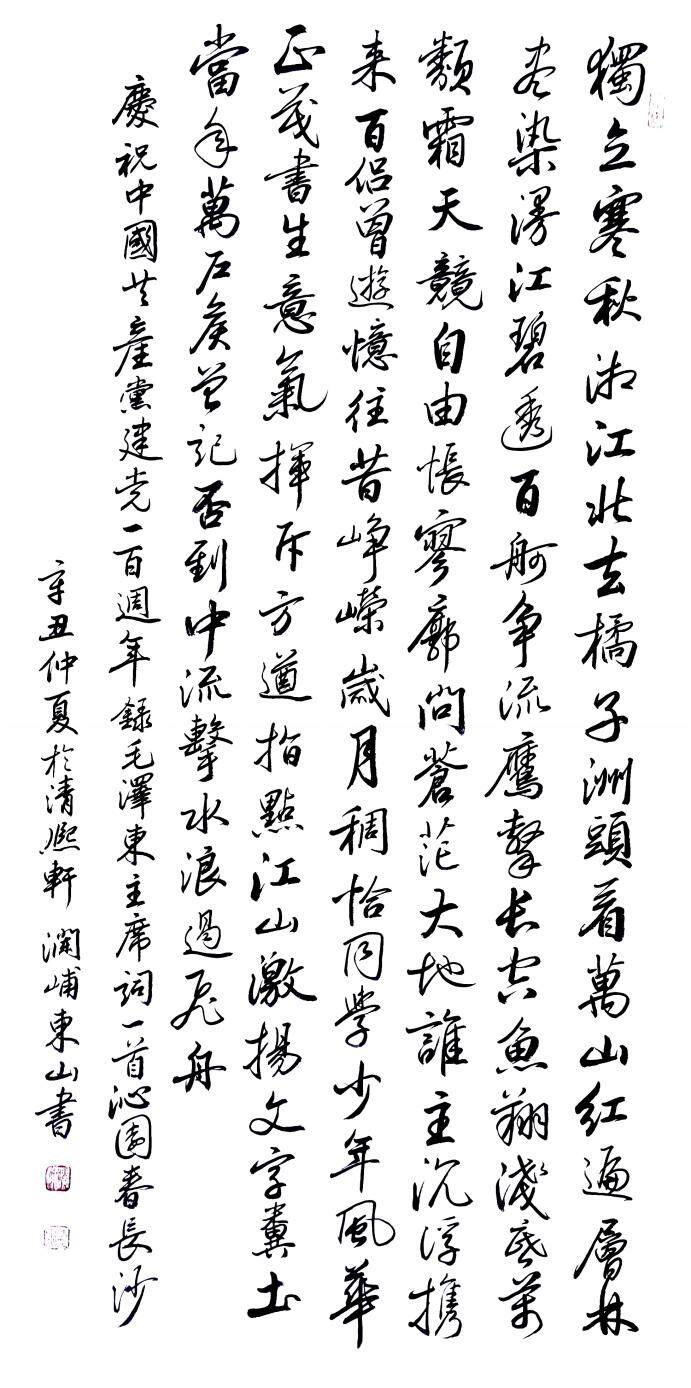 獨立寒秋湘江北去橘子洲頭看萬山紅遍層林
尽染漫江碧透百舸争流鷹擊長空魚翔淺底萬
類霜天競自由悵寥廓問蒼茫大地誰主沉浮携
来百侣曾遊憶往昔峥嶸歲月稠恰同學少年風華
正茂書生意氣揮斥方遒指點江山激揚文字糞土
當年萬户侯曾記否到中流擊水浪遏飛舟
慶祝中國共產黨建党一百週年錄毛澤東主席詞一首沁園春長沙
辛丑仲夏於清熙軒瀾峬東山書